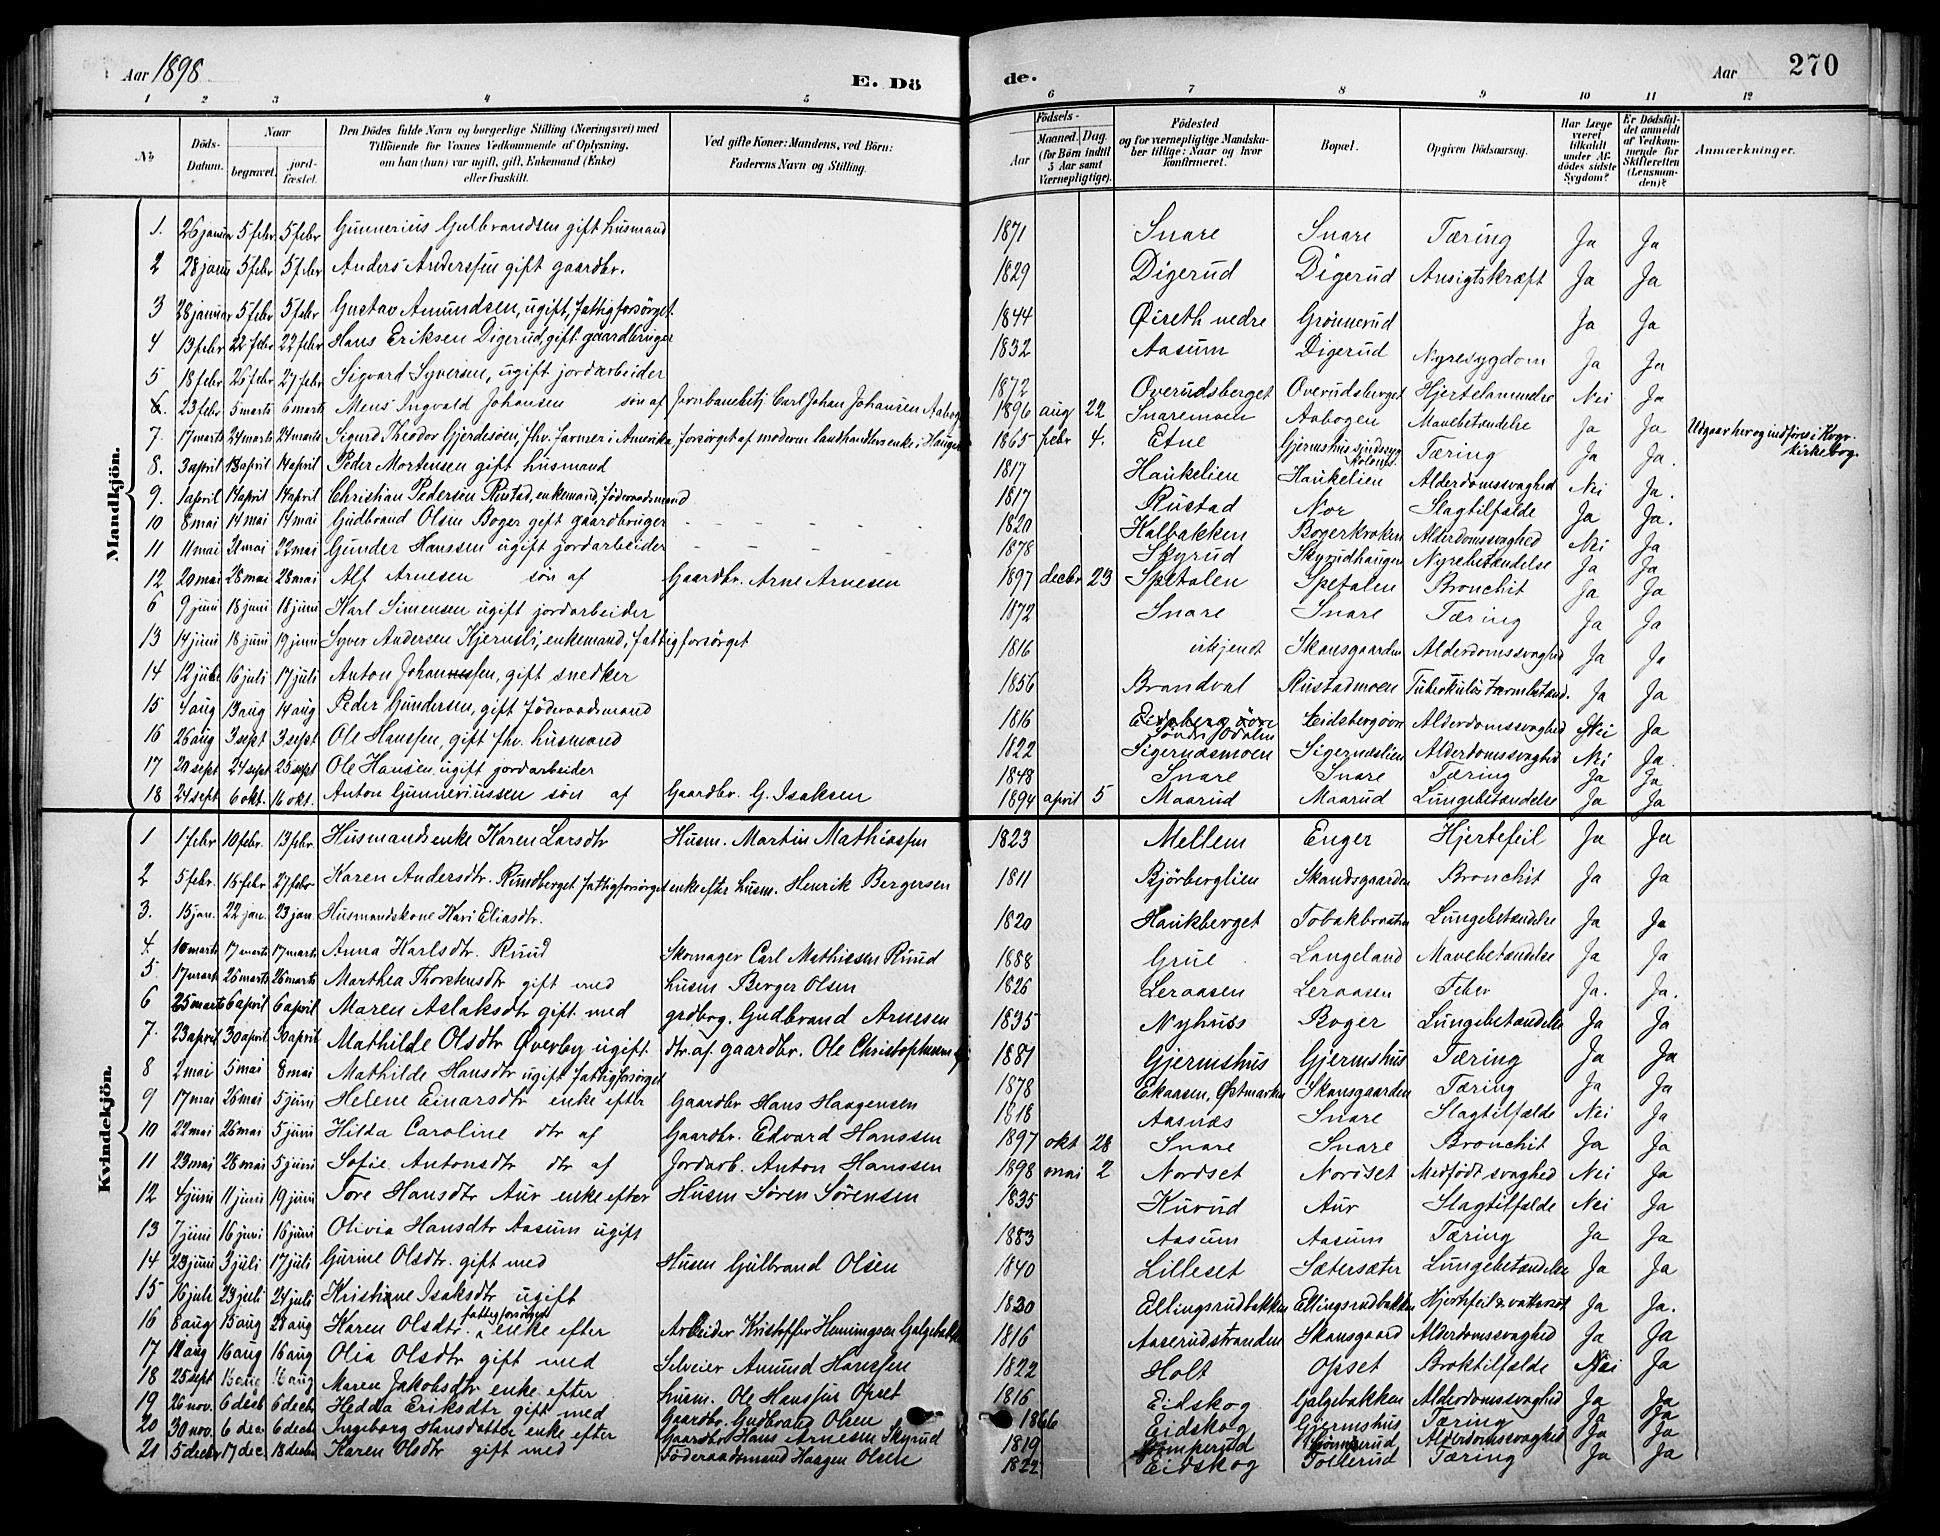 Aar 1898
E. Dö
de.
Aar
270
1 2 3 4 5 6 7 8 9 10 11 12
№ Döds-Datum. Naar begravet. jord-fæstet. Den Dödes fulde Navn og borgerlige Stilling (Næringsvei) med Tilföiende for Voxnes Vedkommende af Oplysning, om han (hun) var ugift, gift, Enkemand (Enke) eller fraskilt. Ved gifte Koner: Mandens, ved Börn: Faderens Navn og Stilling. Födsels- Aar Maaned. Dag. (for Börn indtil 5 Aar samt Værnepligtige). Födested og for værnepligtige Mandskaber tillige: Naar og hvor konfirmeret. Bopæl. Opgiven Dödsaarsag. Har Læge været tilkaldt under Afdödes sidste Sygdom? Er Dödsfaldet anmeldt af Vedkommende for Skifteretten (Lensmanden)? Anmærkninger.
Mandkjön.
1. 26 januar 5 febr 5 febr Gunnerius Gulbrandsen gift husmand 1871 Snare Snare Tæring Ja Ja
2 28 janu 5 febr 5 febr Anders Anderssen gift gaardbr. 1829 Digerud Digerud Ansigtskræft Ja Ja
3 28 januar 5 febr 5 febr Gustav Amundsen, ugift, fattigforsörget 1844 Øireth nedre Grönnerud Ja Ja
4 13 febr 22 febr 22 febr Hans Eriksen Digerud, gift gaardbruger 1832 Aasum Digerud Nyresygdom Ja Ja
5 18 febr 26 febr 27 febr Sigvard Syversen, ugift jordarbeider 1872 Overudsberget Overudsberget Hjertelammelse Nei Ja
6. 23 febr 5 marts 6 marts Mens Ingvald Johansen sön af Jernbanebetj. Carl Johan Johansen Aabogen 1896 aug 22 Snaremoen Aabogen Mavebetændelse Ja Ja
7. 17 marts 24 marts 24 marts Sigurd Theodor Gjerdesöen, fhv. farmer i Amerika, forsörget af moderen landhandlers enke i Haugen 1865 febr 4. Etne Gjermshus Tæring Ja Ja. Udgaar her og indföres i Kvgr. kirkebog.
8. 3 april 13 april 14 april Peder Mortensen gift husmand 1817 Haukelien Haukelien Alderdomssvaghed Nei Ja.
9. 1 april 14 april 14 april Christian Pedersen Rustad, enkemand, föderaadsmand 1817 Rustad Nor Slagtilfælde Ja Ja.
10 8 mai 14 mai 14 mai Gudbrand Olsen Boger gift gaardbruger - - - - - 1820 Kalbakken Bogerkroken Alderdomssvaghed Nei Ja
11 11 mai 21 mai 22 mai Gunder Hanssen ugift jordarbeider - - - - - 1878 Skyrud Skyrudhaugen Nyrebetændelse Ja Ja
12 20 mai 28 mai 28 mai Alf Arnesen sön af Gaardbr. Arne Arnesen 1897 decbr 23 Spetalen Spetalen Bronchit Ja Ja
6 9 juni 18 juni 18 juni Karl Simensen ugift jordarbeider 1872 Snare Snare Tæring Ja Ja
13 14 juni 18 juni 19 juni Syver Andersen Kjernsli, enkemand, fattigforsörget 1816 ukjendt Skansgaarden Alderdomssvaghed Ja Ja
14 12 juli 16 juli 17 juli Anton Johannessen, gift snedker 1856 Brandval Rustadmoen Tuberkulös tarmbetænd. Ja Ja
15 4 aug 13 aug 14 aug Peder Gundersen, gift föderaadsmand 1816 Eidsberg övre Eidsberg övre Alderdomssvaghed Nei Ja
16 26 aug 3 sept 3 sept Ole Hanssen, gift fhv. husmand 1822 Söndre Odalen Sigernæsmoen Sigernæslien Alderdomssvaghed Nei Ja
17 20 sept 24 sept 25 sept Ole Hansen ugift jordarbeider 1848 Snare Snare Tæring Ja Ja
18 24 sept 6 okt. 16 okt. Anton Gunneriussen sön af Gaardbr. G. Isaksen 1894 april 5 Maarud Maarud Lungebetændelse Ja Ja
Kvindekjön.
1 1 febr 10 febr. 13 febr. Husmandsenke Karen Larsdtr Husm. Martin Mathiassen 1823 Mellem Enger Hjertefeil Ja Ja
2 5 febr. 15 febr 27 febr Karen Andersdtr. Rundberget fattigforsörget enke efter husm. Henrik Bergersen 1811 Björberglien Skandsgaarden Bronchit Ja Ja
3. 15 jan. 22 jan. 23 jan. Husmandskone Kari Eliasdtr. 1820 Haukberget Tobakbraaten Lungebetændelse Ja Ja
4. 10 marts 17 marts 17 marts Anna Karlsdtr. Ruud Skomager Carl Mathiesen Ruud 1888 Grue Langeland Mavebetændelse Ja Ja
5 17 marts 26 marts 26 marts Marthea Thorstensdtr gift med husm Berger Olsen 1826 Leraasen Leraasen Feber Ja. Ja.
6 25 marts 6 april 6 april Maren Aslaksdtr gift med grdbrg. Gudbrand Arnesen 1835 Nyhuss Boger Lungebetændelse Ja Ja
7. 23 april 30 april 30 april Mathilde Olsdtr Øverby ugift dtr. af gaardbr. Ole Christophersen 1881 Gjermshus Gjermshus Tæring Ja Ja
8 2 mai 5 mai 8 mai Mathilde Hansdtr ugift fattigforsörget 1878 Ekaasen, Østmarken Skansgaarden Tæring Ja Ja
9 17 mai 26 mai 5 juni Helene Einarsdtr enke efter Gaardbr Hans Haagensen 1818 Aasnæs Snare Slagtilfælde Nei Ja
10 22 mai 26 mai 5 juni Hilda Caroline dtr af Gaardbr. Edvard Hanssen 1897 okt 28 Snare Snare Bronchit Ja Ja
11 23 mai 28 mai 5 juni Sofie Antonsdtr dtr af Jordarb. Anton Hanssen 1898 mai 2 Nordset Nordset Medfödt svaghed Nei Ja
12 4 juni 11 juni 19 juni Tore Hansdtr Aur enke efter Husm Søren Sørensen 1835 Kurud Aur Slagtilfælde Nei Ja
13 7 juni 16 juni 16 juni Olivia Hansdtr Aasum ugift 1883 Aasum Aasum Tæring Ja Ja
14 23 juni 3 juli 17 juli Gurine Olsdtr. gift med Husm Gulbrand Olsen 1840 Lilleset Sætersæter Lungebetændelse Ja Ja
15 16 juli 23 juli 24 juli Kristiane Isaksdtr ugift 1830 Ellingsrudbakken Ellingsrudbakken Hjertefeil & vattersot Ja Ja.
16 8 aug 15 aug 28 aug Karen Olsdtr. fattigforsörget enke efter Arbeider Kristoffer Henningsen Galgebakken 1816 Aaserudstranden Skansgaard Alderdomssvaghed Ja Ja
17 12 aug 16 aug 16 aug Olia Olsdtr gift med Selveier Amund Hanssen 1822 Holt Opset Broktilfælde Nei Ja
18 25 sept Maren Jakobsdtr enke efter husm. Ole Hanssen Opset 1816 Eidskog Galgebakken Alderdomssvaghed Ja Ja
19 26 nov. 6 decb 6 decb Hedda Eriksdtr gift med Gaardbr. Gudbrand Olsen 1866 Eidskog Gjermshus Tæring Ja Ja
20 30 nov. 6 dec. 6 decb Ingeborg Hansdatter enke efter Gaardbr Hans Arnesen Skyrud 1819 Alderdomssvaghed Ja Ja
21 5 decbr 17 dec. 18 decbr Karen Olsdtr gift med Föderaadsmand Haagen Olsen 1822 Eidskog Tollerud Tæring Ja Ja